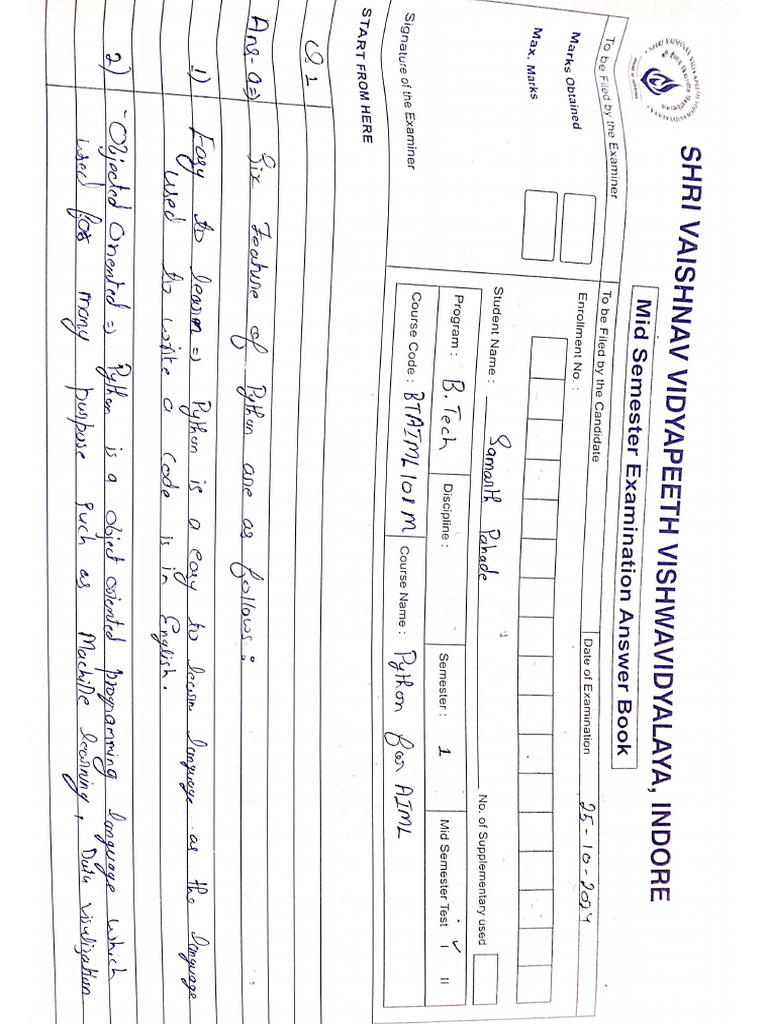 SHRI VAISHNAV VIDYAPEETH VISHWAVIDYALAYA, INDORE
Mid Semester Examination Answer Book
To be Filed by the Examiner
Marks Obtained
Max. Marks
Signature of the Examiner
To be Filed by the Candidate
Enrollment No. :
Date of Examination 25-10-2024
Student Name : Samarth Pahade
No. of Supplementary used
Program : B.Tech Discipline : Semester : 1 Mid Semester Test I II
Course Code : BTAIML101M Course Name : Python for AIML
START FROM HERE
Q.1
Ans-a⇒ Six Feature of Python are as follows:
1) Easy to learn ⇒ Python is a easy to learn language as the language
used to write a code is in English.
2) Objected Oriented ⇒ Python is a object oriented programming language which
used for many purpose such as Machine learning, Data visulization